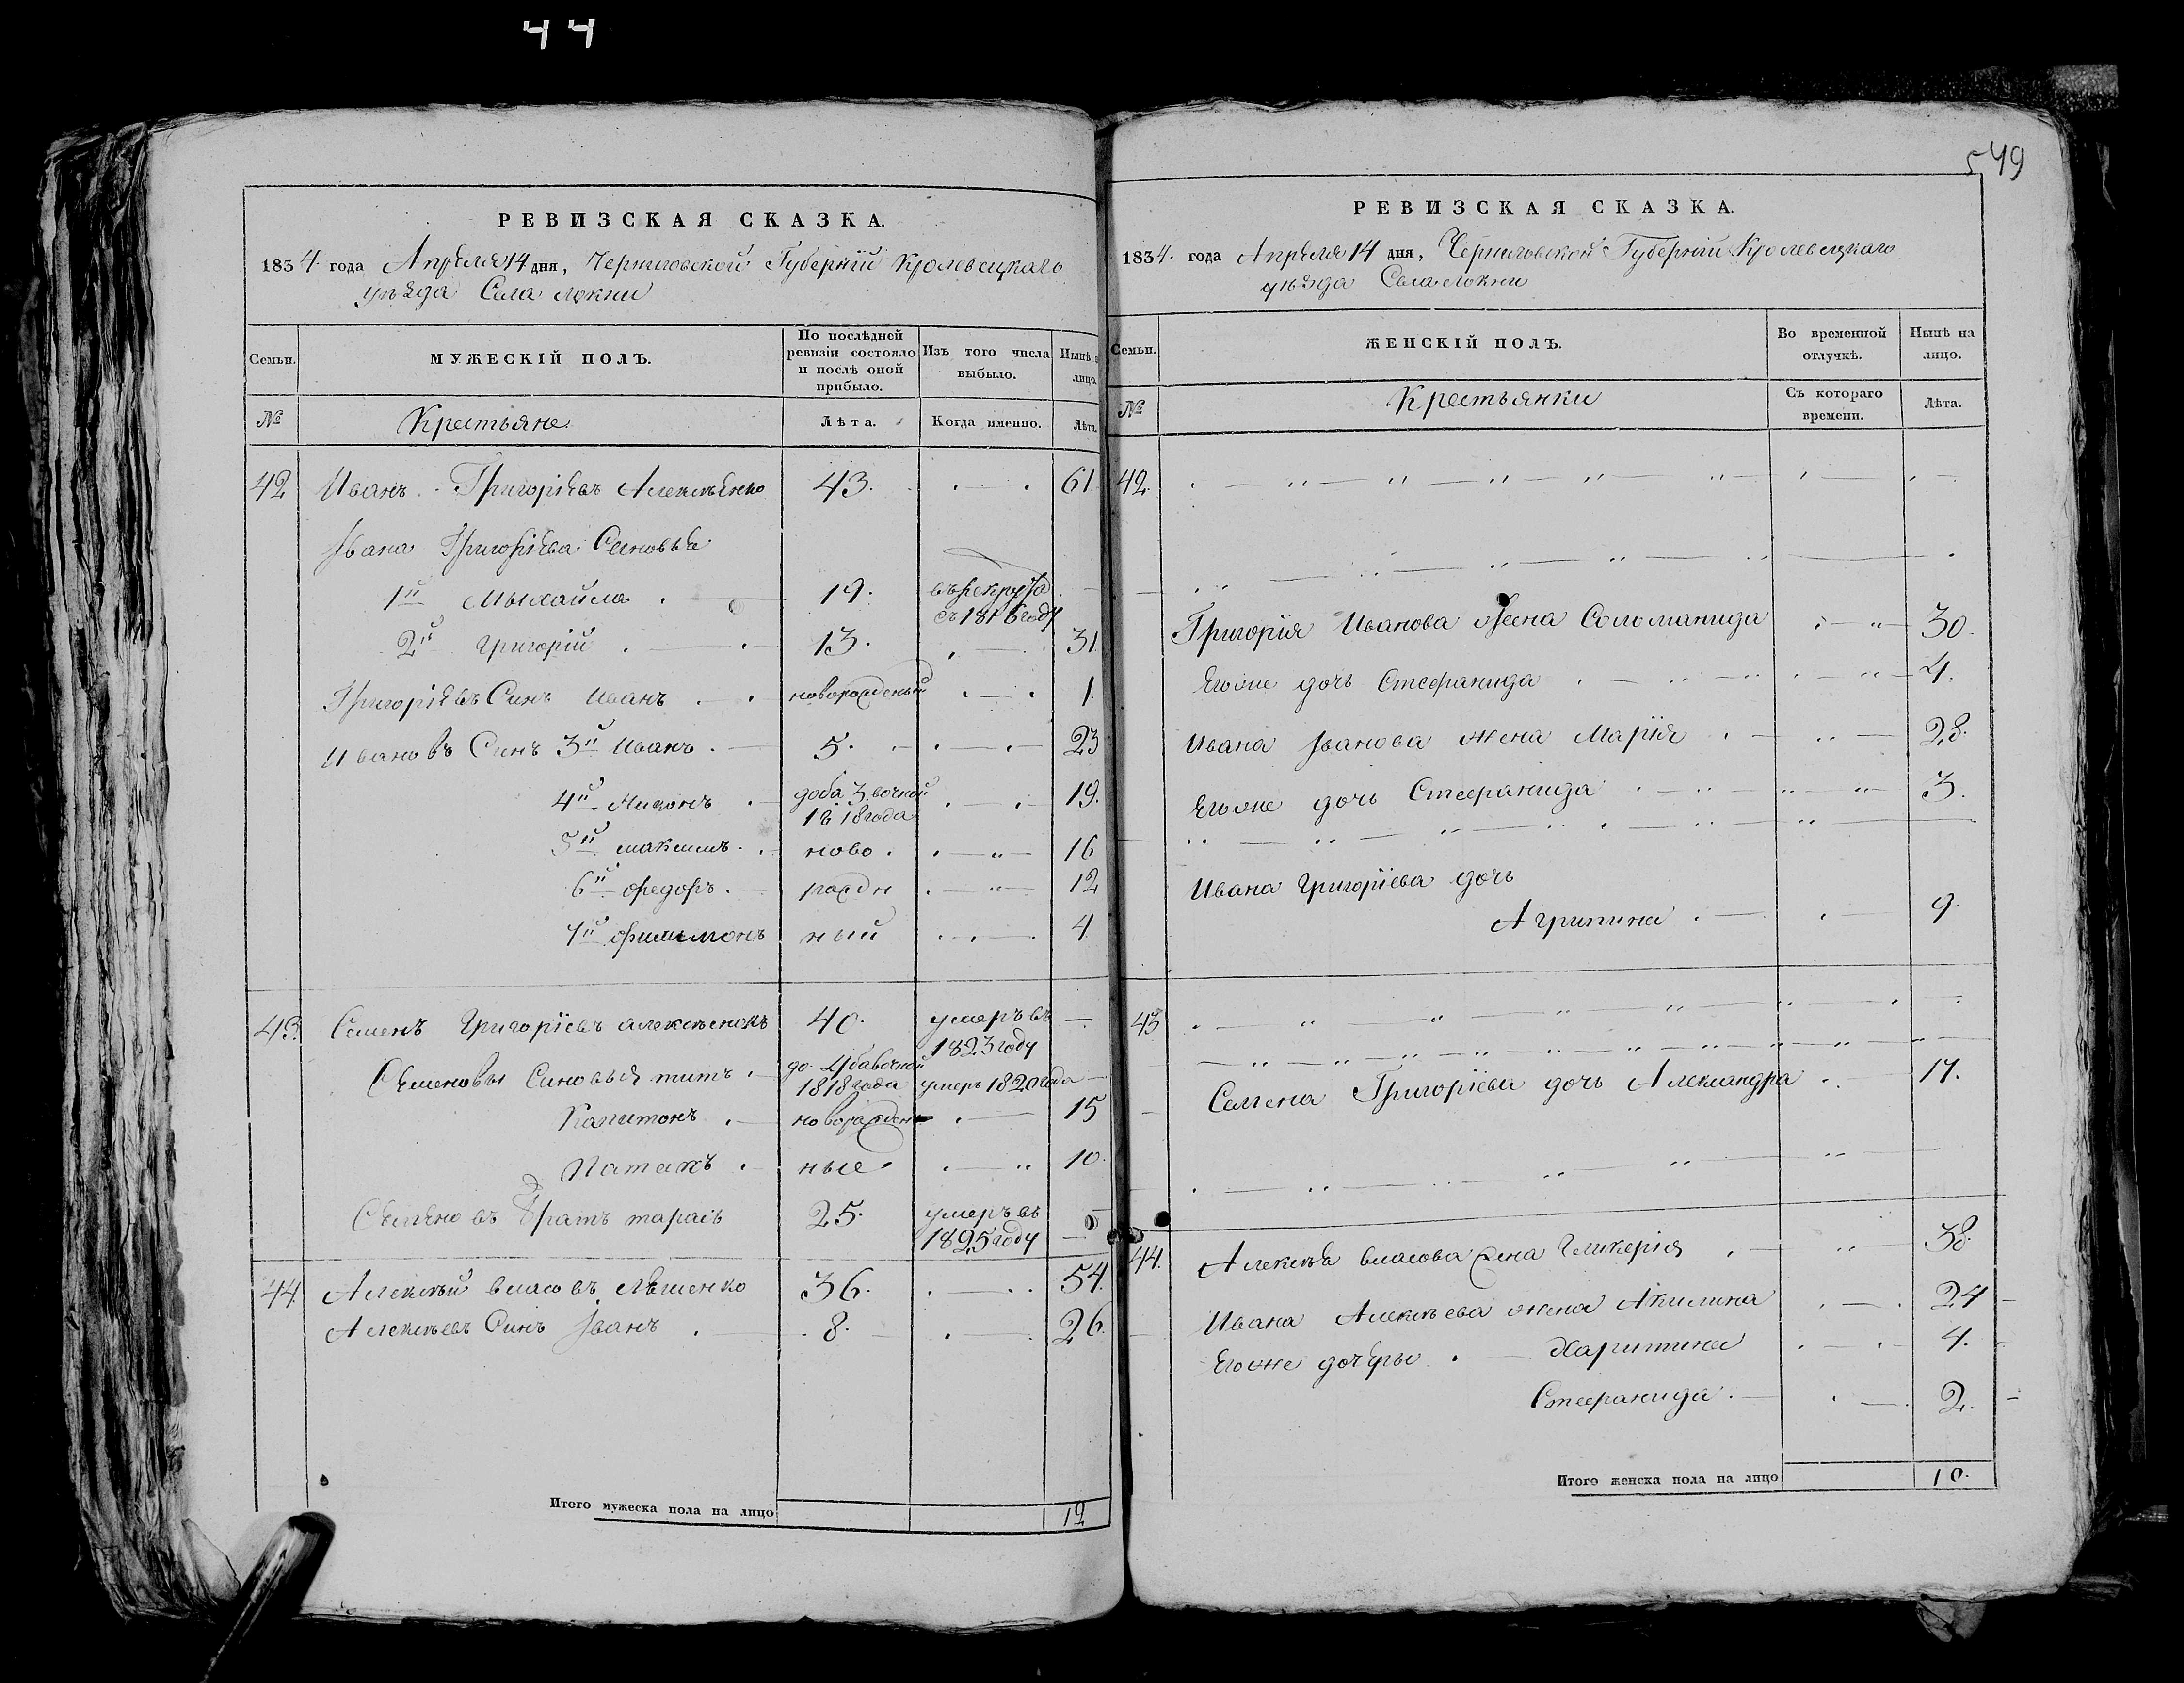 44
РЕВИЗСКАЯ СКАЗКА.
1834. года Апреля 14 дня, Черниговской Губерніи Кролевецкаго
уѣзда Села Локни
Семьи.
МУЖЕСКІЙ ПОЛЪ.
По послѣдней ревизіи состояло и послѣ оной прибыло.
Изъ того числа выбыло.
Нынѣ н лицо.
№
Крестьяне
Лѣта.
Когда именно.
Лѣта.
42 Иванъ Григоріевъ Алексѣенко 43. 61.
Івана Григоріева Сыновья
1й Мыхайла 19. въ рекруты съ 1816 году
2й Григорій 13. 31.
Григоріевъ Синъ Иванъ новорожденый 1.
Ивановъ Синъ 3й Иванъ 5. 23
4й 1818 года 19.
5й максимъ ново 16
6й Федоръ рожден 12
7й Филимонъ ный 4.
43. Семенъ Григоріевъ алексѣенокъ 40. умеръ въ 1823 году
Семеновы Синовья титъ 1818 года умеръ 1820 года
Капитонъ новорожден 15
Патапъ ные 10.
Семеновъ братъ тарасъ 25. умеръ въ 1825 году
44. Алексѣй власовъ Ляшенко 36. 54.
Алексѣевъ Синъ Іванъ 8. 26.
Итого мужеска пола на лицо 12
549
РЕВИЗСКАЯ СКАЗКА.
1834. года Апреля 14 дня, Черниговской Губерніи Кролевецкаго
уѣзда Села Локни
Семьи.
ЖЕНСКІЙ ПОЛЪ.
Во временной отлучкѣ.
Нынѣ на лицо.
№
Крестьянки
Съ котораго времени.
Лѣта.
42.
Григорія Иванова жена Соломанида 30.
Егоже дочь Стефанида 4.
Ивана Іванова жена Марія 28.
Егоже дочь Стефанида 3.
Ивана Григоріева дочь
Агрипина 9
43
Семена Григоріева дочь Александра 17.
44. Алексѣя власова жена Гликерія 38.
Ивана Алексѣева жена Акилина 24
Егоже дочеры Харитина 4.
Стефанида 2.
Итого женска пола на лицо 10.